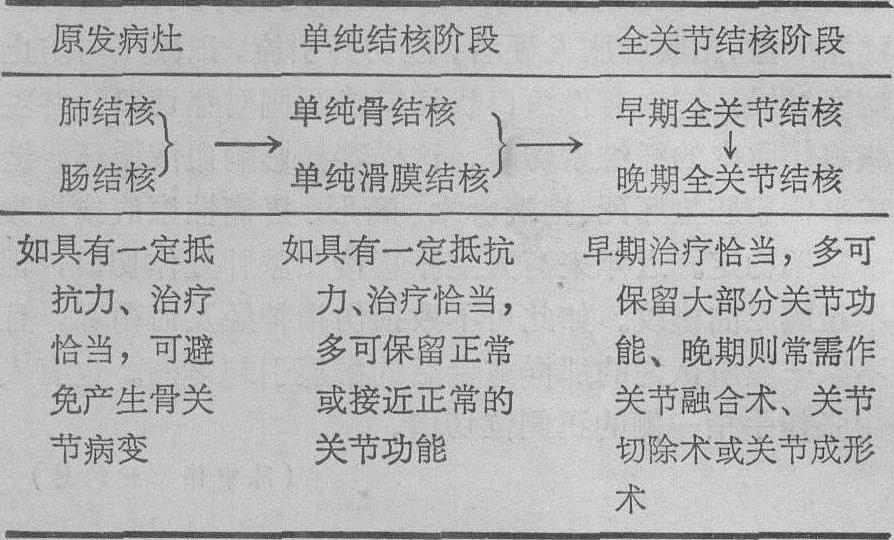 原发病灶 单纯结核阶段 全关节结核阶段
肺结核 单纯骨结核 早期全关节结核
} → } → ↓
肠结核 单纯滑膜结核 晚期全关节结核
如具有一定抵
抗力、治疗
恰当，可避
免产生骨关
节病变
如具有一定抵抗
力、治疗恰当，
多可保留正常
或接近正常的
关节功能
早期治疗恰当，多可
保留大部分关节功
能、晚期则常需作
关节融合术、关节
切除术或关节成形
术